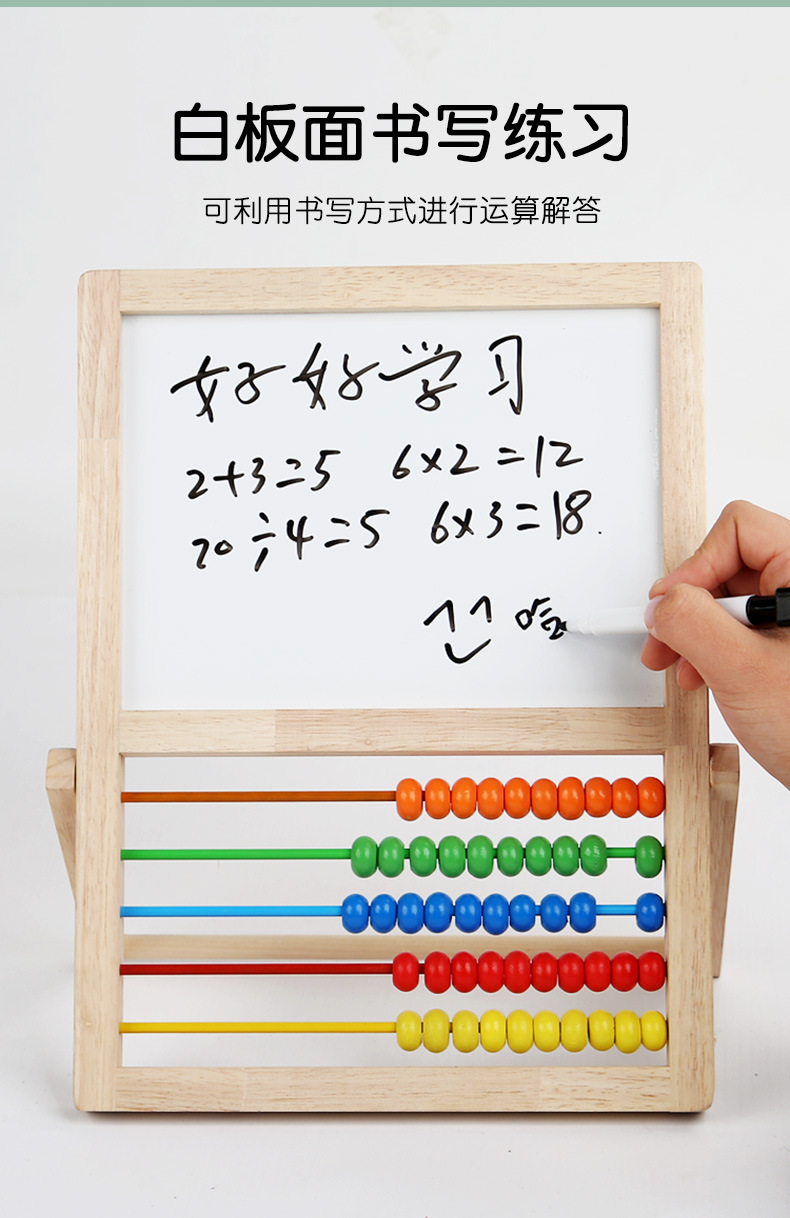 白板面书写练习
可利用书写方式进行运算解答
好好学习
2+3=5 6×2=12
20÷4=5 6×3=18.